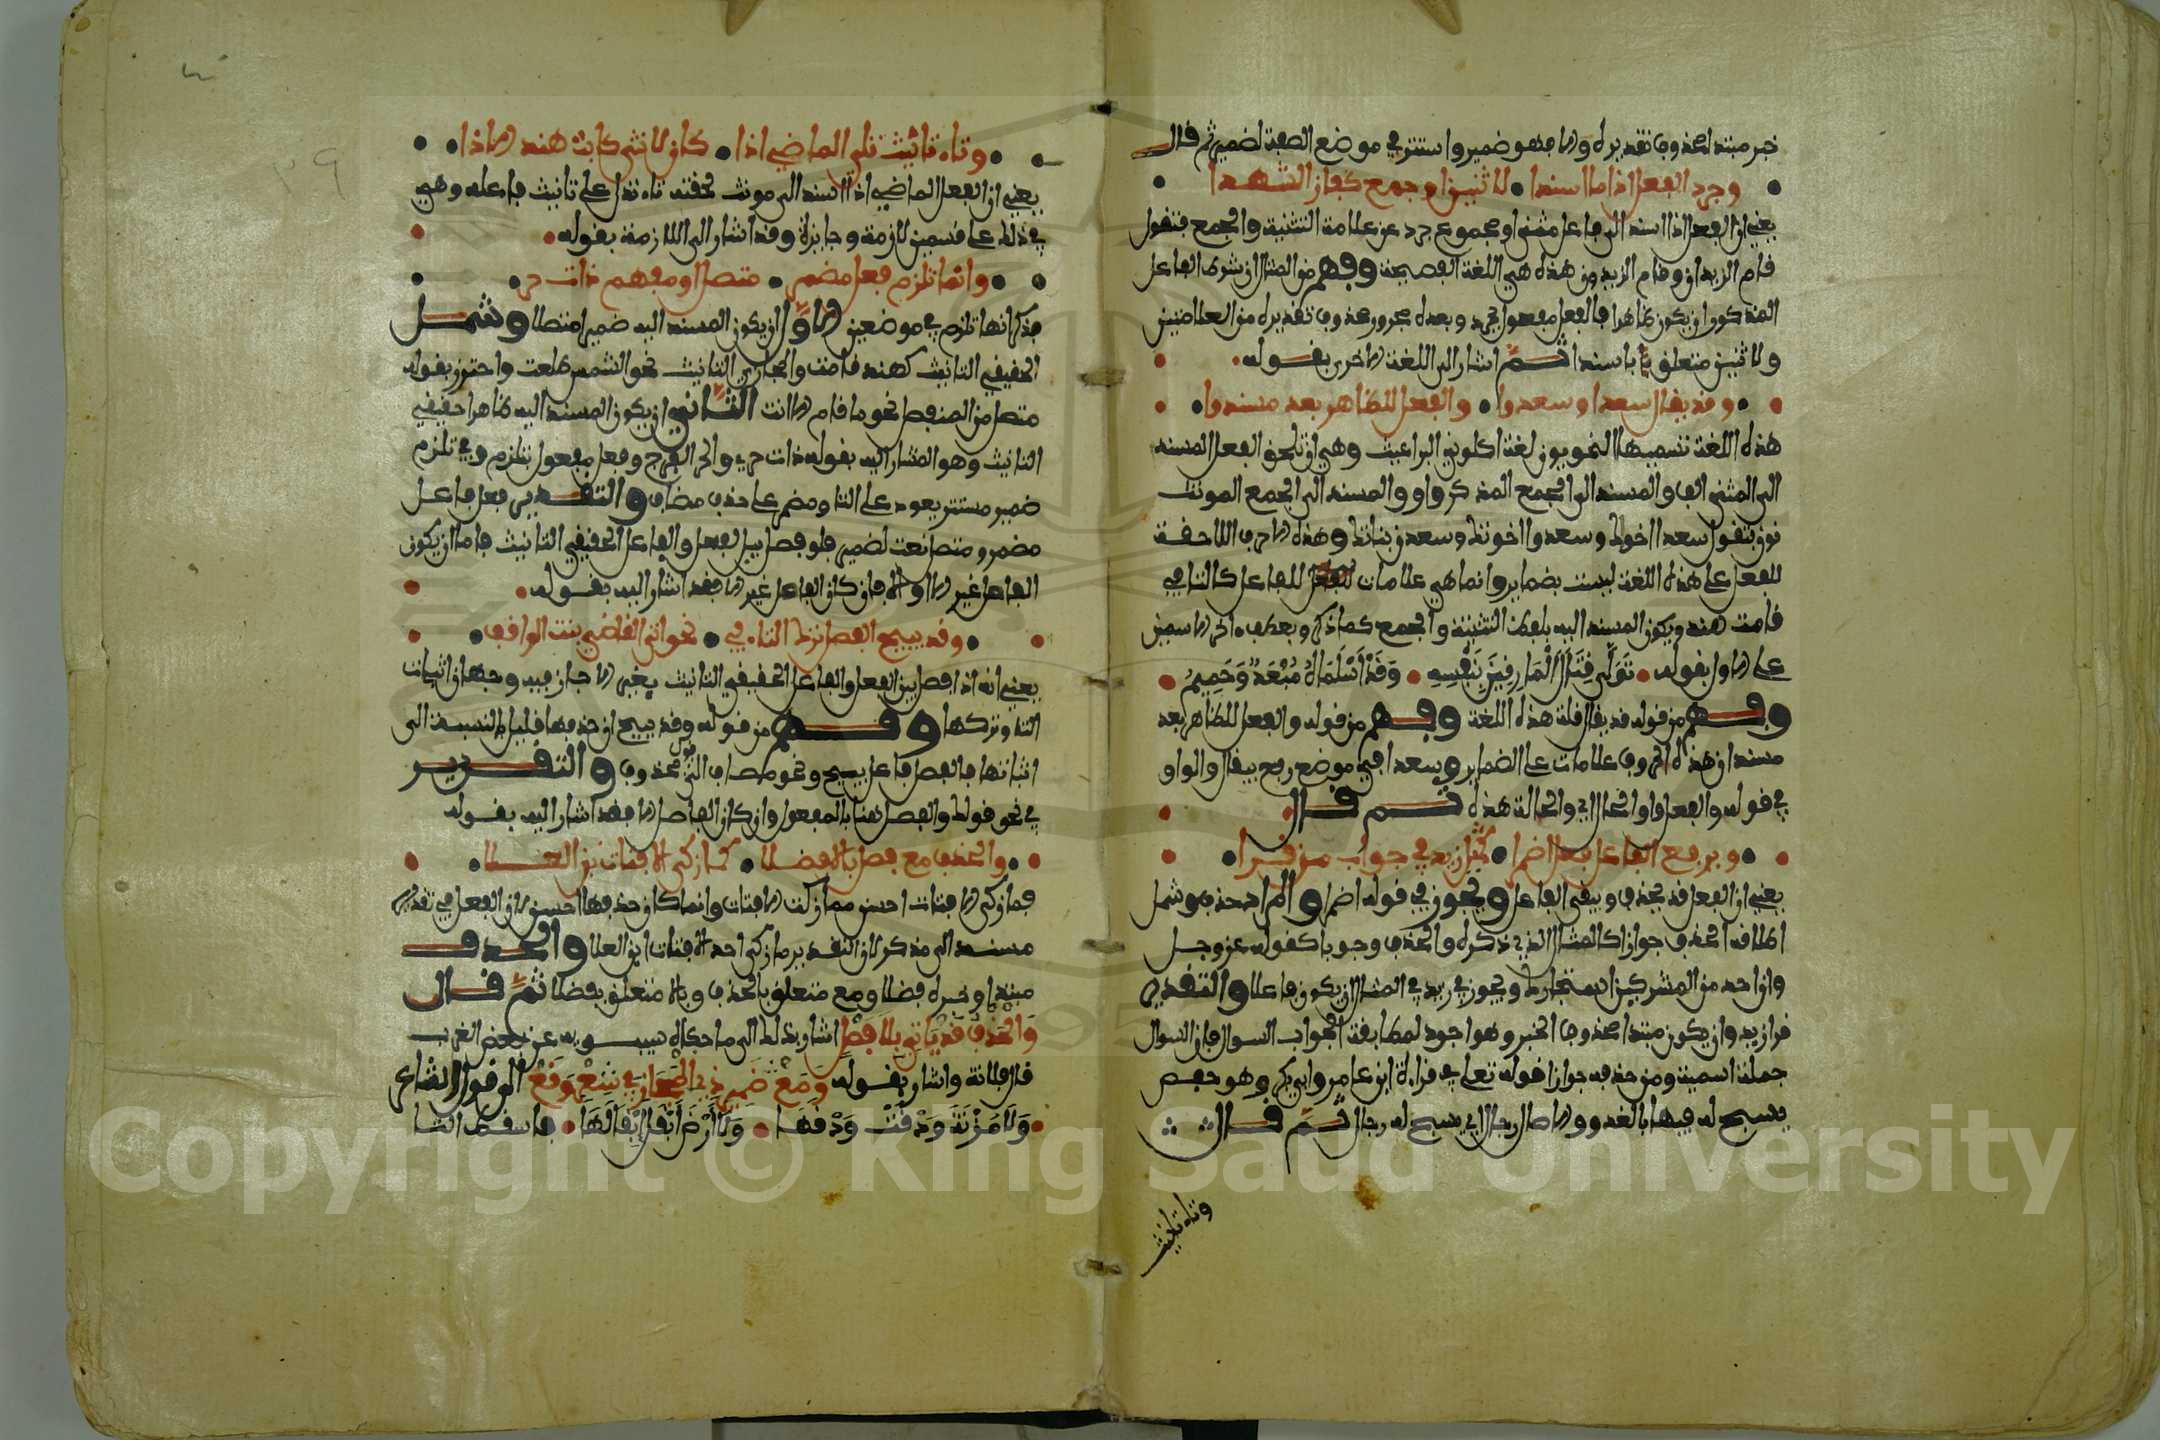 خبر مبتدا محذوف تقديره والا فهو ضمير واستتر في موضع الصفة لضمير ثم قال
وجرد الفعل اذا ما اسندا لاثنين او جمع كفاز الشهدا
يعني ان الفعل اذا اسند الى فاعل مثنى او مجموع جرد عن علامة التثنية والجمع فتقول
قام الزيدان وقام الزيدون هذه هي اللغة الفصيحة وفهم من المثال ان شرط الفاعل
المذكور ان يكون ظاهرا فالفعل مفعول بجرد وبعده مجرور محذوف تقديره من العلامتين
ولاثنين متعلق باسندا ثم اشار الى اللغة الاخرى بقوله
وقد يقال سعدا وسعدوا والفعل للظاهر بعد مسند
هذه اللغة تسميها النحويون لغة اكلوني البراغيث وهي ان تلحق الفعل المسند
الى المثنى الف والمسند الى الجمع المذكر واو والمسند الى الجمع المونث
نون فتقول سعدا اخواك وسعدوا اخوتك وسعدن بناتك وهذه الاحرف اللاحقة
للفعل على هذه اللغة ليست بضماير وانما هي علامات للفاعل كالتا في
قامت هند ويكون المسند اليه بلفظ التثنية والجمع كما ذكر وبعطف احد الاسمين
على الاول بقوله تَوَلَّى قِتَالَ الْمَارِقِينَ بِنَفْسِهِ وَقَدْ اَسْلَمَاهُ مُبْعَدٌ وَحَمِيمُ
وفهم من قوله قد يقال قلة هذه اللغة وفهم من قوله والفعل للظاهر بعد
مسند ان هذه الحروف علامات على الضماير وسعدا في موضع رفع بيقال والواو
في قوله والفعل واو الحال اي والحالة هذه ثم قال
ويرفع الفاعل فعل اضمرا كمثل زيد في جواب من قرا
يعني ان الفعل قد يحذف ويبقى الفاعل وتجوز في قوله اضمرا والمراد حذف وشمل
اطلاقه الحذف جوازا كالمثال الذي ذكره والحذف وجوبا كقوله عز وجل
وان احد من المشركين استجارك ويجوز في زيد في المثال ان يكون فاعلا والتقدير
قرا زيد وان يكون مبتدا محذوف الخبر وهو اجود لمطابقة الجواب السوال فان السوال
جملة اسمية ومن حذفه جوازا قوله تعلى في قراءة ابن عامر وابي بكر وهو حفص
يسبح له فيها بالغدو والاصال رجال اي يسبح له رجال ثم قال
وتاء تانيث
وتاء تانيث تلي الماضي اذا كان لانثى كابت هند الاذا
يعني ان الفعل الماضي اذا اسند الى مونث لحقته تاء تدل على تانيث فاعله وهي
في ذلك على قسمين لازمة وجايزة وقد اشار الى اللازمة بقوله
وانما تلزم فعل مضمر متصل او مفهم ذات حر
فذكر انها تلزم في موضعين الاول ان يكون المسند اليه ضميرا متصلا وشمل
الحقيقي التانيث كهند قامت والمجازي التانيث نحو الشمس طلعت واحترز بقوله
متصل من المنفصل نحو ما قام الا انت الثاني ان يكون المسند اليه ظاهرا حقيقي
التانيث وهو المشار اليه بقوله ذات حر والحر الفرج وفعل مفعول بتلزم وفي تلزم
ضمير مستتر يعود على التا ومضمر على حذف مضاف والتقدير فعل فاعل
مضمر ومتصل نعت لضمير فلو فصل بين الفعل والفاعل الحقيقي التانيث فاما ان يكون
الفاصل غير الا او الا فان كان الفاصل غير الا فقد اشار اليه بقوله
وقد يبيح الفصل ترك التاء في نحو اتى القاضي بنت الواقف
يعني انه اذا فصل بين الفعل والفاعل الحقيقي التانيث بغير الا جاز فيه وجهان اثبات
التا وتركها وفهم من قوله وقد يبيح ان حذفها قليل بالنسبة الى
اثباتها فالفصل فاعل يبيح ونحو مضاف الى محذوف والتقدير
في نحو قولك والفصل هنا بالمفعول وان كان الفاصل الا فقد اشار اليه بقوله
والحذف مع فصل بالا فضلا كما زكى الا فتاة بن العلا
فما زكى الا فتات احسن مما زكت الا فتات وانما كان حذفها احسن لان الفعل في تقدير
مسند الى مذكر لان التقدير ما زكى احد الا فتات ابن العلا والحذف
مبتدا وخبره فضلا ومع متعلق بالحذف وبالا متعلق بفضلا ثم قال
وَالْحَذْفُ قَدْ يَاتِي بِلَا فَصْلٍ اشار بذلك الى ما حكاه سيبويه عن بعض العرب
قال فلانة واشار بقوله وَمَعْ ضَمِيرِ ذِي الْمَجَازِ فِي شِعْرٍ وَقَعْ الى قول الشاعر
فَلَا مُزْنَةٌ وَدَقَتْ وَدْقَهَا وَلَا اَرْضَ اَبْقَلَ اِبْقَالَهَا فاسقط التا